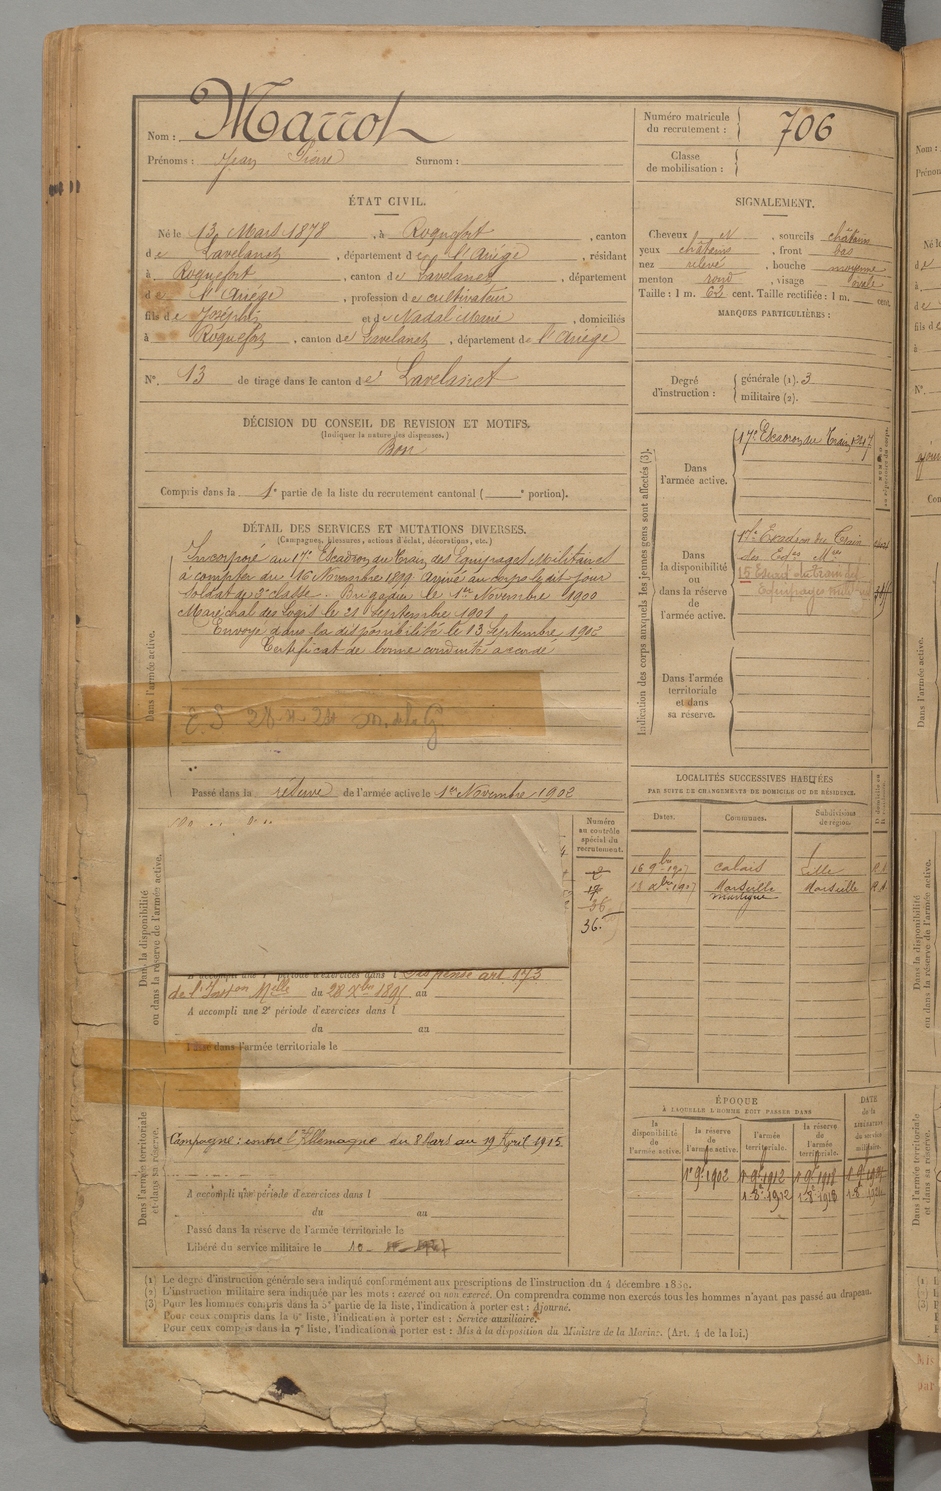 Nom : Marrot
Prénoms : Jean Pierre Surnom :
Numéro matricule du recrutement : 706
Classe de mobilisation :
ÉTAT CIVIL.
Né le 13 Mars 1878, à Roquefort, canton
de Lavelanet, département de l'Ariége, résidant
à Roquefort, canton de Lavelanet, département
de l'Ariége, profession de cultivateur
fils de Joseph et de Nadal Marie, domiciliés
à Roquefort, canton de Lavelanet, département de l'Ariége
N°. 13 de tirage dans le canton de Lavelanet
SIGNALEMENT.
Cheveux N, sourcils châtains
yeux châtains, front bas
nez relevé, bouche moyenne
menton rond, visage ovale
Taille : 1 m. 62 cent. Taille rectifiée : 1 m. cent.
MARQUES PARTICULIÈRES :
Degré d'instruction : générale (1). 3
militaire (2).
DÉCISION DU CONSEIL DE REVISION ET MOTIFS.
(Indiquer la nature des dispenses.)
Bon
Compris dans la 1e partie de la liste du recrutement cantonal ( e portion).
DÉTAIL DES SERVICES ET MUTATIONS DIVERSES.
(Campagnes, blessures, actions d'éclat, décorations, etc.)
Dans l'armée active.
Incorporé au 17e Escadron du Train des Equipages Militaires
à compter du 16 Novembre 1899. Arrivé au corps le dit jour
Soldat de 2e classe. Brigadier le 1er Novembre 1900
Maréchal des Logis le 21 Septembre 1901
Envoyé dans la disponibilité le 13 Septembre 1902
Certificat de bonne conduite accordé
Passé dans la réserve de l'armée active le 1er Novembre 1902
Indication des corps auxquels les jeunes gens sont affectés (3).
Dans l'armée active.
17e Escadron du Train
Dans la disponibilité ou dans la réserve de l'armée active.
17e Escadron du Train
des Eqes Mres
15 Escad du Train des
Equipages milit
Dans l'armée territoriale et dans sa réserve.
LOCALITÉS SUCCESSIVES HABITÉES
PAR SUITE DE CHANGEMENTS DE DOMICILE OU DE RÉSIDENCE.
Dates. Communes. Subdivisions de région.
16 9bre 1907 Calais Lille
18 Xbre 1907 Marseille Marseille
martigue
Dans la disponibilité ou dans la réserve de l'armée active.
Numéro au contrôle spécial du recrutement.
36
36.
A accompli une 1e période d'exercices dans l Dispensé art. 173
de l'Inston Mlle du 28 Xbre 1895 au
A accompli une 2e période d'exercices dans l
du au
Passé dans l'armée territoriale le
Dans l'armée territoriale et dans sa réserve.
Campagne : contre l'Allemagne du 8 Mars au 19 Avril 1915
A accompli une période d'exercices dans l
du au
Passé dans la réserve de l'armée territoriale le
Libéré du service militaire le 10
ÉPOQUE
À LAQUELLE L'HOMME DOIT PASSER DANS
DATE de la LIBÉRATION du service militaire.
la disponibilité de l'armée active. la réserve de l'armée active. l'armée territoriale. la réserve de l'armée territoriale.
1er 9bre 1902 1er 9bre 1912 1er 9bre 1918
1 8bre 1912 1 8bre 1918
(1) Le degré d'instruction générale sera indiqué conformément aux prescriptions de l'instruction du 4 décembre 1889.
(2) L'instruction militaire sera indiquée par les mots : exercé ou non exercé. On comprendra comme non exercés tous les hommes n'ayant pas passé au drapeau.
(3) Pour les hommes compris dans la 5e partie de la liste, l'indication à porter est : Ajourné.
Pour ceux compris dans la 6e liste, l'indication à porter est : Service auxiliaire.
Pour ceux compris dans la 7e liste, l'indication à porter est : Mis à la disposition du Ministre de la Marine. (Art. 4 de la loi.)